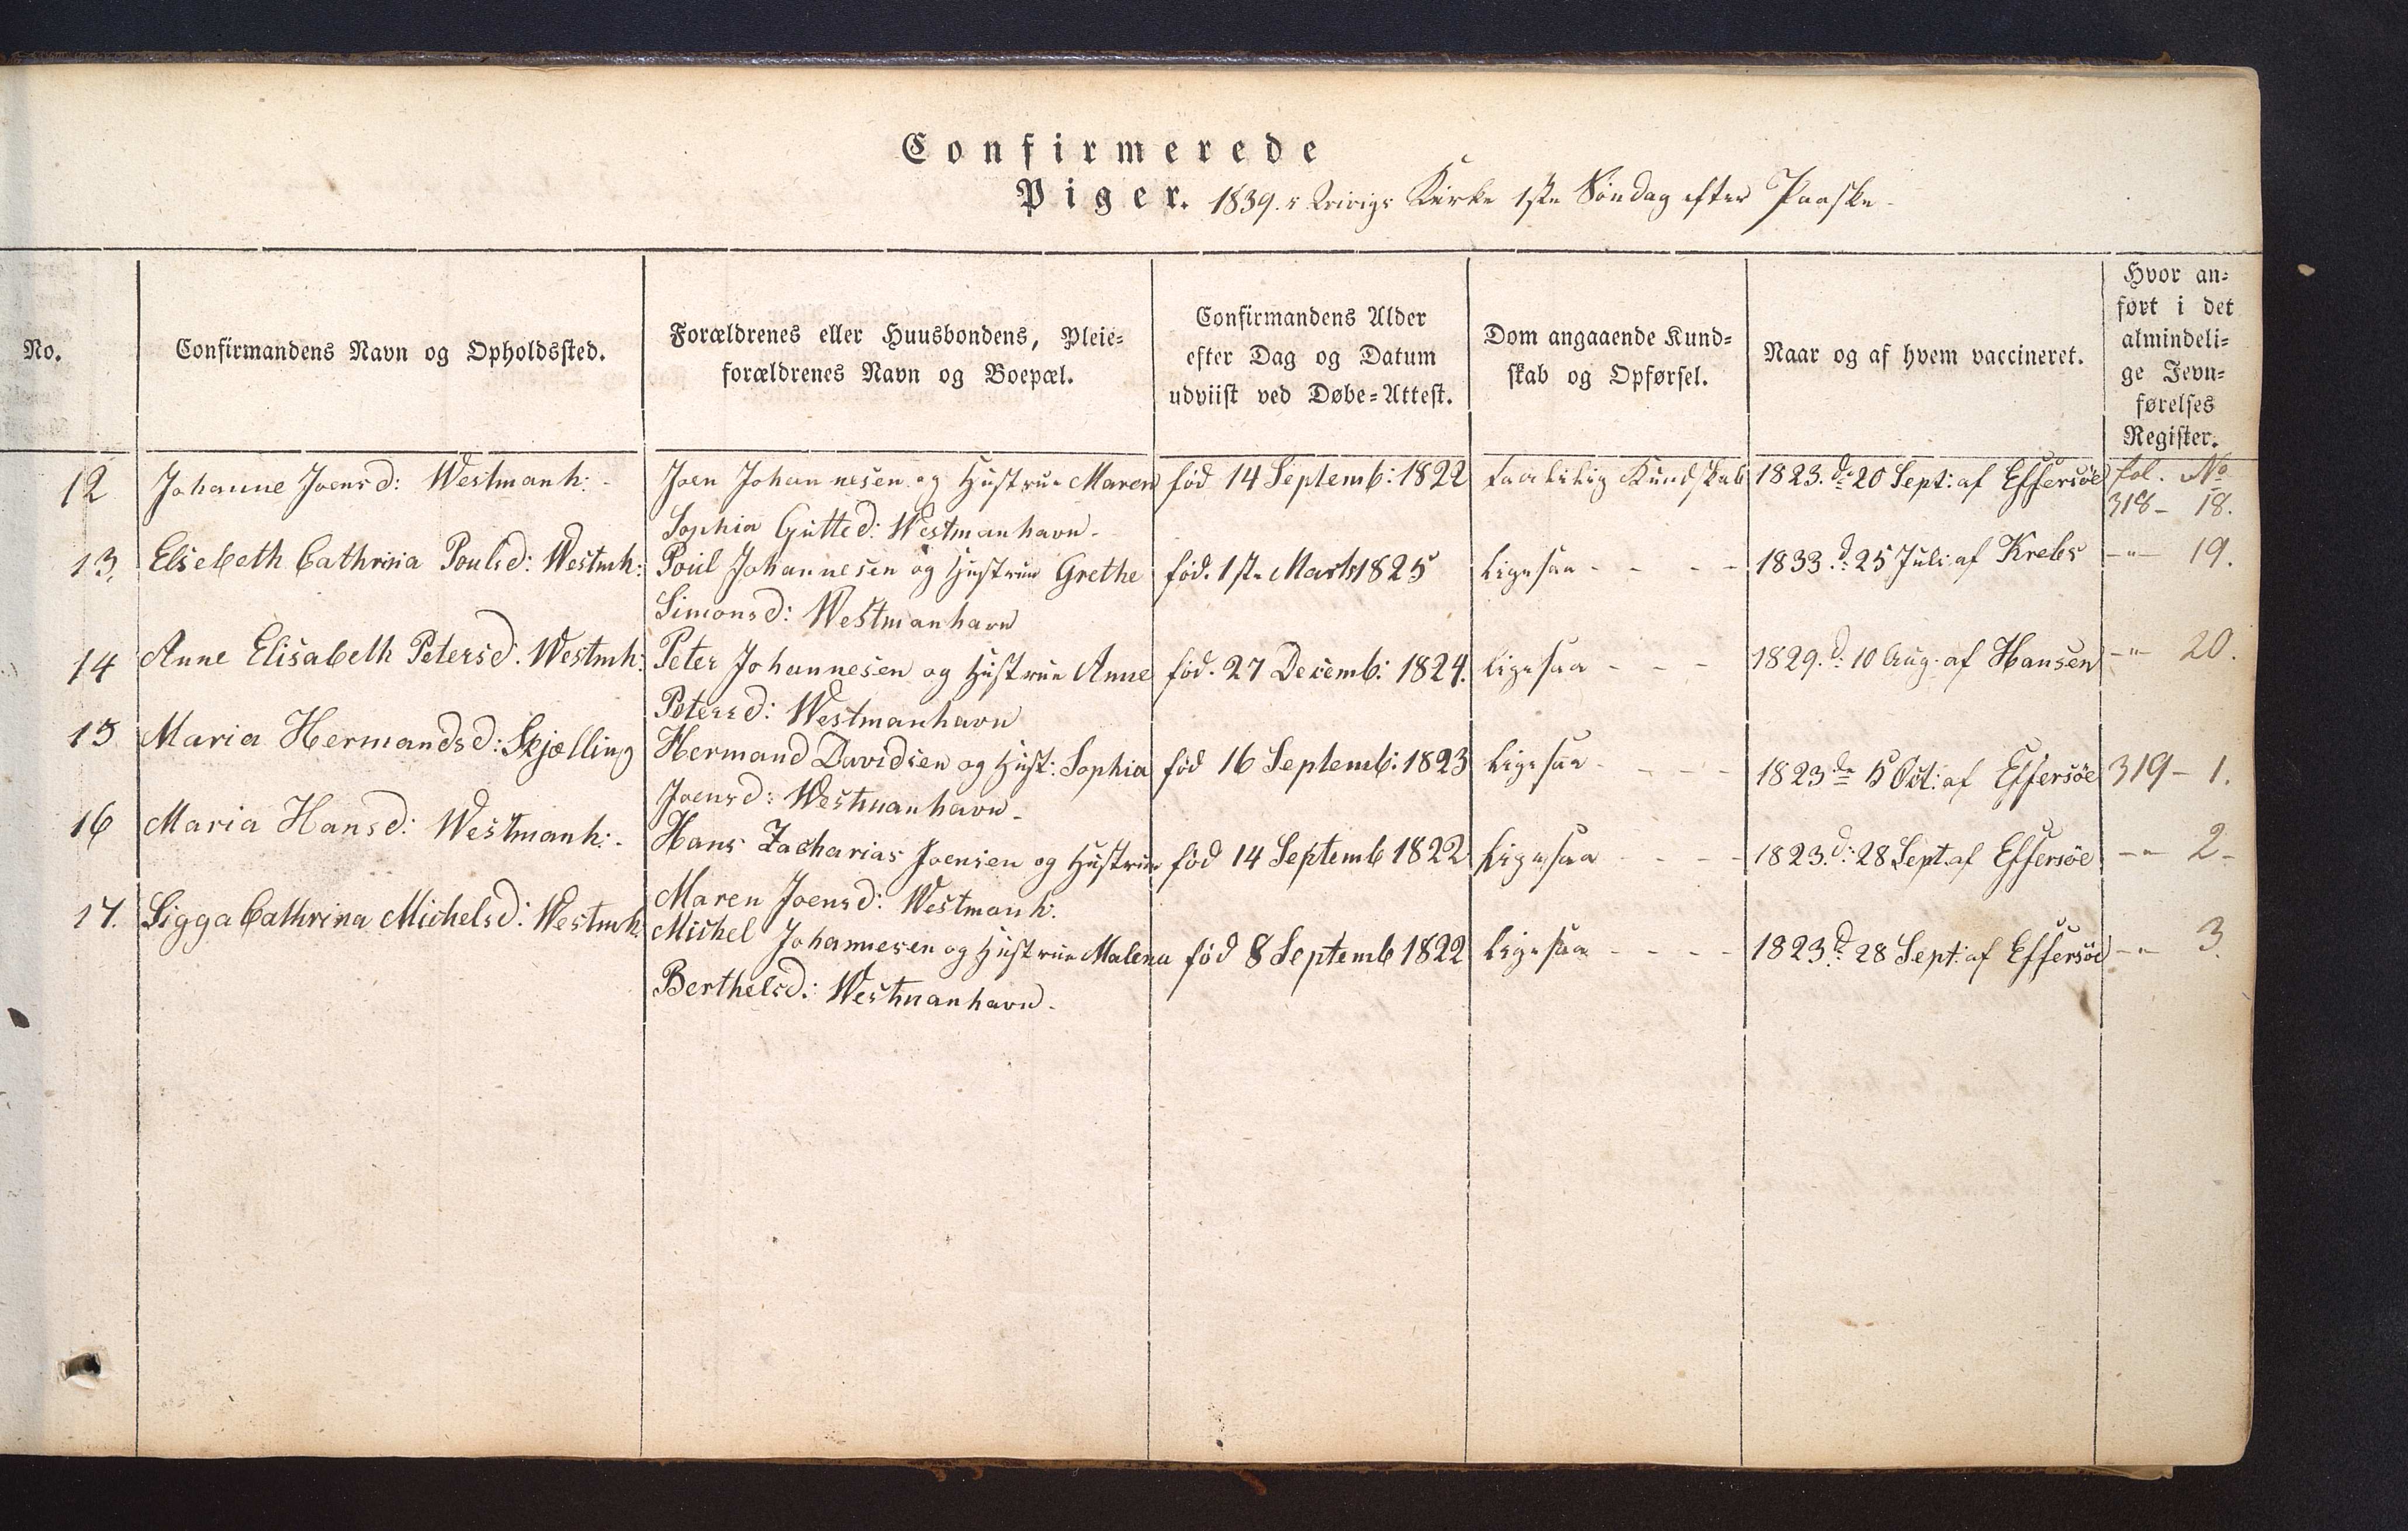 Confirmerede
Piger. 1839. i Kirke 1ste Søndag efter Paaske.
No.
Confirmandens Navn og Opholdssted.
Forældrenes eller Huusbondens, Pleie-
forældrenes Navn og Boepæl.
Confirmandens Alder
efter Dag og Datum
udviist ved Døbe-Attest.
Dom angaaende Kund-
skab og Opførsel.
Naar og af hvem vaccineret.
Hvor an-
ført i det
almindeli-
ge Jevn-
førelses
Register.
12 Johanne Joensd: Westmanh: Joen Johannesen og Hustrue Maren fød 14 Septemb: 1822 Kundskab 1823. d: 20 Sept: af Effersøe fol. No
Sophia Gutted: Westmanhavn. 318 - 18.
13. Elsebeth Cathrina Poulsd: Westmh: Poul Johannesen og Hustrue Grethe fød. 1ste Marts 1825 ligesaa - - - - 1833. d: 25 Juli af Krebs -"- 19.
Simonsd: Westmanhavn
14 Anne Elisabeth Petersd. Westmh: Peter Johannesen og Hustrue Anne fød. 27 Decemb: 1824. ligesaa - - - 1829. d: 10 Aug. af Hansen -"- 20.
Petersd: Westmanhavn
15 Maria Hermandsd: Skjælling Hermand Davidsen og Hust: Sophia fød 16 Septemb: 1823 ligesaa - - - - 1823 d: 15 Oct: af Effersøe 319 - 1.
Joensd: Westmanhavn.
16 Maria Hansd: Westmanh: Hans Zacharias Joensen og Hustrue fød 14 Septemb 1822 ligesaa - - - - 1823. d: 28 Sept. af Effersøe -"- 2.
Maren Joensd: Westmanh:
17. Sigga Cathrina Michelsd: Westmh. Michel Johannesen og Hustrue Malena fød 8 Septemb 1822 ligesaa - - - - 1823. d: 28 Sept: af Effersøe -"- 3.
Berthelsd: Westmanhavn.